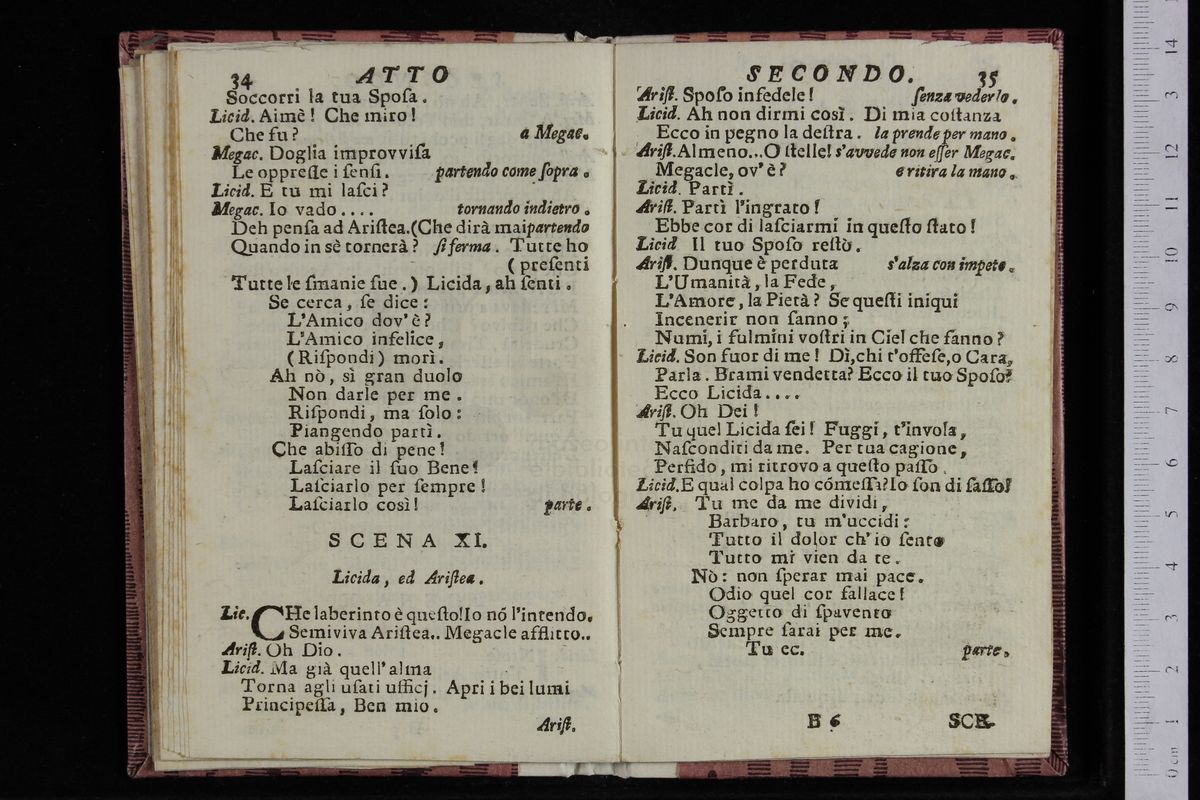 34 ATTO
Soccorri la tua Spoſa.
Licid. Aimè! Che miro!
Che fu? a Megac.
Megac. Doglia improvviſa
Le oppreſſe i ſenſi. partendo come ſopra.
Licid. E tu mi laſci?
Megac. Io vado.... tornando indietro.
Deh penſa ad Ariſtea.(Che dirà mai partendo
Quando in sè tornerà? ſi ferma. Tutte ho
(preſenti
Tutte le ſmanie ſue.) Licida, ah ſenti.
Se cerca, ſe dice:
L'Amico dov'è?
L'Amico infelice,
(Riſpondi) morì.
Ah nò, sì gran duolo
Non darle per me.
Riſpondi, ma ſolo:
Piangendo partì.
Che abiſſo di pene!
Laſciare il ſuo Bene!
Laſciarlo per ſempre!
Laſciarlo così! parte.
SCENA XI.
Licida, ed Ariſtea.
Lic. CHe laberinto è queſto!Io nó l'intendo.
Semiviva Ariſtea.. Megacle afflitto..
Ariſt. Oh Dio.
Licid. Ma già quell' alma
Torna agli uſati ufficj. Apri i bei lumi
Principeſſa, Ben mio.
Ariſt.
SECONDO. 35
Ariſt. Spoſo infedele! ſenza vederlo.
Licid. Ah non dirmi così. Di mia coſtanza
Ecco in pegno la deſtra. la prende per mano.
Ariſt. Almeno...O ſtelle! s'avvede non eſſer Megac.
Megacle, ov'è? e ritira la mano.
Licid. Partì.
Ariſt. Partì l'ingrato!
Ebbe cor di laſciarmi in queſto ſtato!
Licid Il tuo Spoſo reſtò.
Ariſt. Dunque è perduta s'alza con impeto.
L'Umanità, la Fede,
L'Amore, la Pietà? Se queſti iniqui
Incenerir non ſanno;
Numi, i fulmini voſtri in Ciel che fanno?
Licid. Son fuor di me! Dì,chi t'offeſe,o Cara,
Parla. Brami vendetta? Ecco il tuo Spoſo?
Ecco Licida....
Ariſt. Oh Dei!
Tu quel Licida ſei! Fuggi, t'invola,
Naſconditi da me. Per tua cagione,
Perfido, mi ritrovo a queſto paſſo.
Licid.E qual colpa ho cómeſſa?Io ſon di ſaſſo!
Ariſt. Tu me da me dividi,
Barbaro, tu m'uccidi:
Tutto il dolor ch'io ſento
Tutto mi vien da te.
Nò: non ſperar mai pace.
Odio quel cor fallace!
Oggetto di ſpavento
Sempre ſarai per me.
Tu ec. parte.
B 6 SCE-
0 cm 1 2 3 4 5 6 7 8 9 10 11 12 13 14